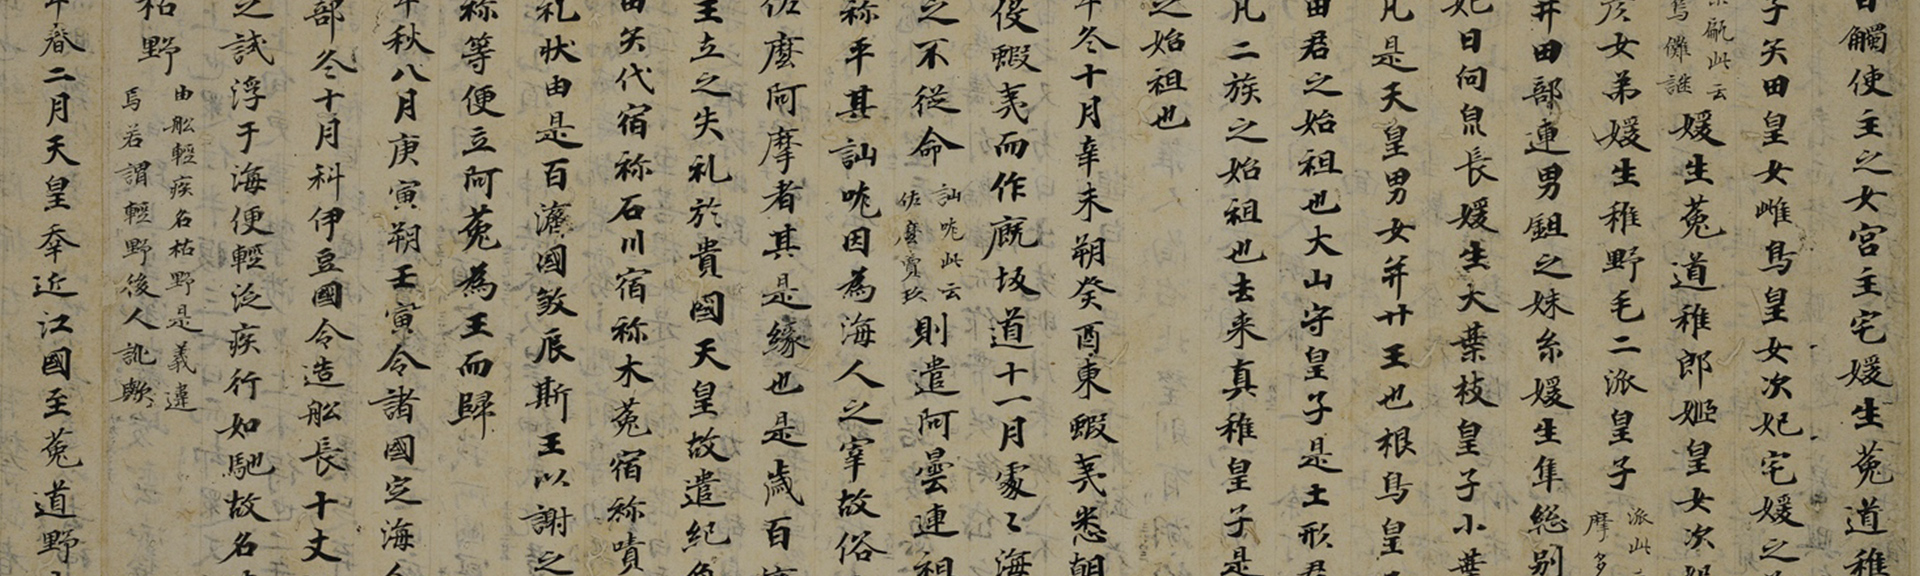 觸使主之女宮主宅媛生菟道稚
子矢田皇女雌鳥皇女次妃宅媛之
此云
烏儺謎
媛生菟道稚郎姬皇女次
女弟媛生稚野毛二派皇子
派此
摩多
井田部連男鉏之妹糸媛生隼総别
妃日向泉長媛生大葉枝皇子小葉
凡是天皇男女并廿王也根鳥皇
田君之始祖也大山守皇子是土形君
凡二族之始祖也去来真稚皇子是
之始祖也
年冬十月辛未朔癸酉東蝦夷悉朝
役蝦夷而作厩坂道十一月處々海
之不從命
訕哤此云
佐麼賣玖
則遣阿曇連祖
祢平其訕哤因為海人之宰故俗
佐麼阿摩者其是緣也是歲百
主立之失礼於貴國天皇故遣紀角
田矢代宿祢石川宿祢木菟宿祢嘖
礼状由是百濟國敘辰斯王以謝之
祢等便立阿菟為王而歸
年秋八月庚寅朔壬寅令諸國定海人
部冬十月科伊豆國令造船長十丈
之試浮于海便輕泛疾行如馳故名
枯野
由船輕疾名枯野是義違
焉若謂輕野後人訛歟
年春二月天皇幸近江國至菟道野